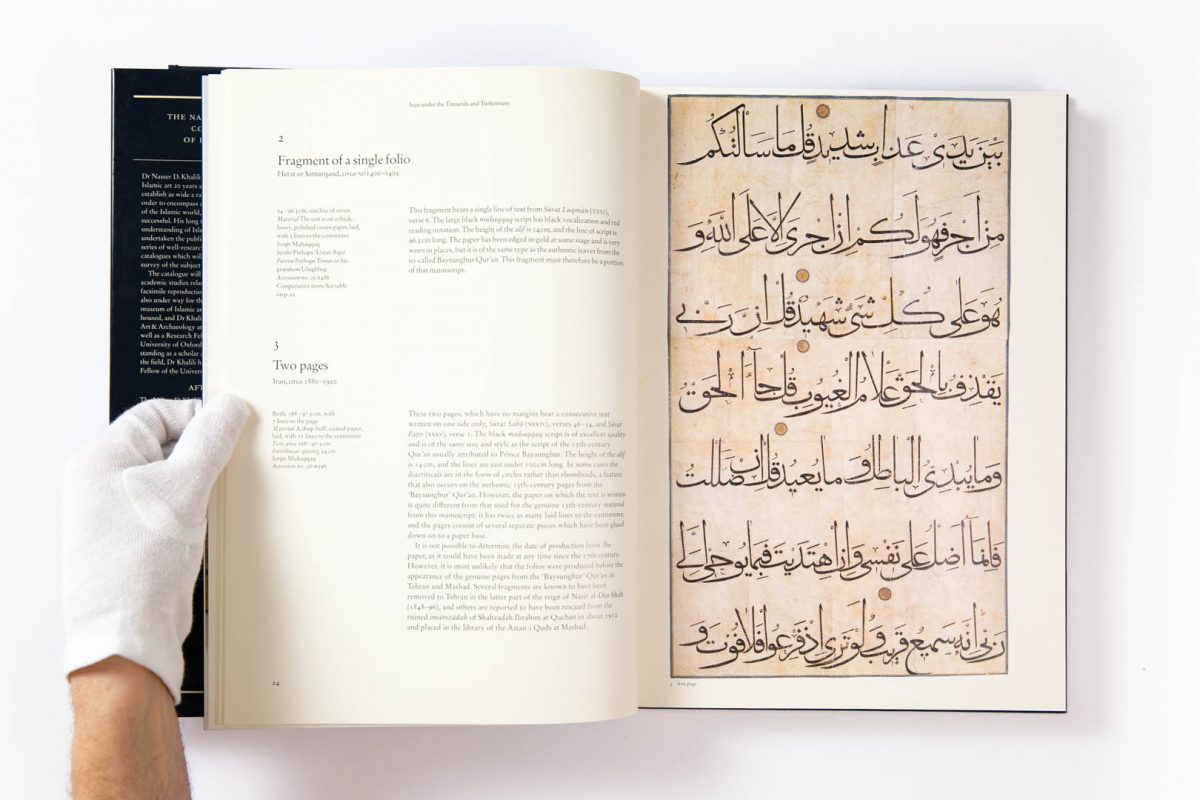 THE NA
CO
OF I
Dr Nasser D. Khalili
Islamic art 20 years a
establish as wide a ra
order to encompass a
of the Islamic world,
successful. His long t
understanding of Isla
undertaken the publi
series of well-resear
catalogues which wil
survey of the subject
The catalogue will
academic studies rela
facsimile reproductio
also under way for th
museum of Islamic ar
housed, and Dr Khalili
Art & Archaeology at
well as a Research Fe
University of Oxford
standing as a scholar a
the field, Dr Khalili h
Fellow of the Univers
AFT
Iran under the Timurids and Turkomans
2
Fragment of a single folio
Herat or Samarqand, circa AD 1400–1405
24 · 96.5 cm, one line of seven
Material The text is on a thick,
heavy, polished cream paper, laid,
with 5 lines to the centimetre
Script Muḥaqqaq
Scribe Perhaps 'Umar Aqta'
Patron Perhaps Timur or his
grandson Ulughbeg
Accession no. QUR486
Comparative items See table
on p.22
This fragment bears a single line of text from Sūrat Luqmān (XXXI),
verse 6. The large black muḥaqqaq script has black vocalization and red
reading notation. The height of the alif is 14 cm, and the line of script is
96.5 cm long. The paper has been edged in gold at some stage and is very
worn in places, but it is of the same type as the authentic leaves from the
so-called Baysunghur Qur'an. This fragment must therefore be a portion
of that manuscript.
3
Two pages
Iran, circa 1880–1920
Both, 168 · 97.5 cm, with
7 lines to the page
Material A deep buff, coated paper,
laid, with 11 lines to the centimetre
Text area 168 · 97.5 cm
Interlinear spacing 24 cm
Script Muḥaqqaq
Accession no. QUR596
These two pages, which have no margins bear a consecutive text
written on one side only, Sūrat Sabā (XXXIV), verses 46–54, and Sūrat
Fāṭir (XXXV), verse 1. The black muḥaqqaq script is of excellent quality
and is of the same size and style as the script of the 15th-century
Qur'an usually attributed to Prince Baysunghur. The height of the alif
is 14 cm, and the lines are just under 100 cm long. In some cases the
diacriticals are in the form of circles rather than rhomboids, a feature
that also occurs on the authentic 15th-century pages from the
'Baysunghur' Qur'an. However, the paper on which the text is written
is quite different from that used for the genuine 15th-century material
from this manuscript: it has twice as many laid lines to the centimetre,
and the pages consist of several separate pieces which have been glued
down on to a paper base.
It is not possible to determine the date of production from the
paper, as it could have been made at any time since the 17th century.
However, it is most unlikely that the folios were produced before the
appearance of the genuine pages from the 'Baysunghur' Qur'an in
Tehran and Mashad. Several fragments are known to have been
removed to Tehran in the latter part of the reign of Nasir al-Din Shah
(1848–96), and others are reported to have been rescued from the
ruined imāmzādah of Shahzadah Ibrahim at Quchan in about 1912
and placed in the library of the Astan-i Quds at Mashad.
24
بين يدى عذاب شديد قل ما سألتكم
من أجر فهو لكم إن أجرى إلا على الله و
هو على كل شىء شهيد قل إن ربى
يقذف بالحق علام الغيوب قل جاء الحق
وما يبدئ الباطل وما يعيد قل إن ضللت
فإنما أضل على نفسى وإن اهتديت فبما يوحى إلى
ربى إنه سميع قريب ولو ترى إذ فزعوا فلا فوت و
3 first page